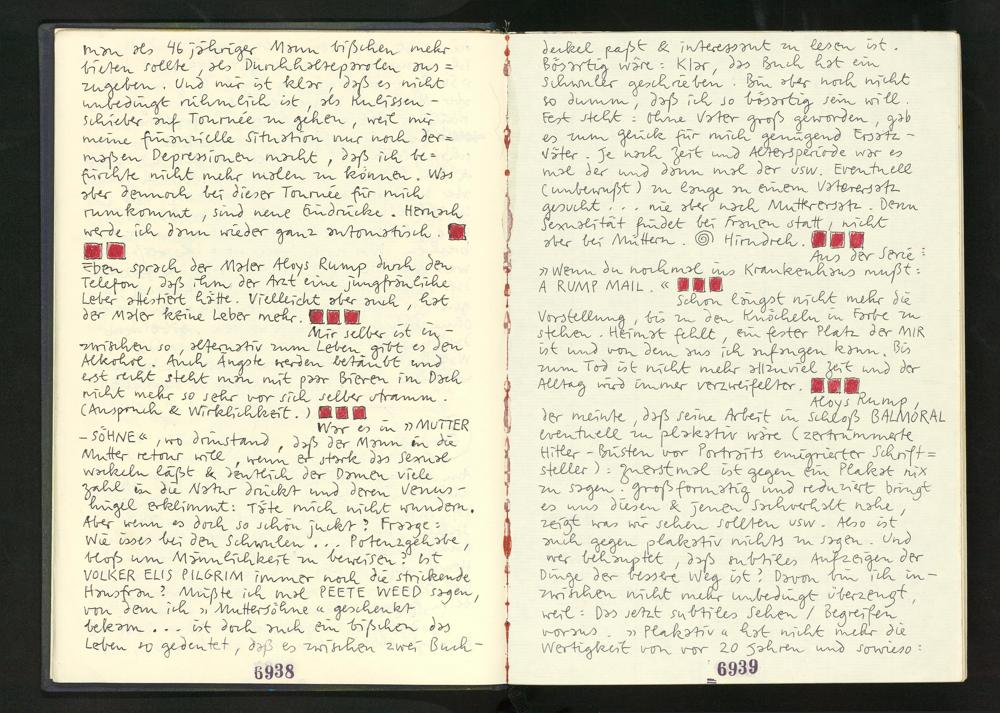 man als 46jähriger Mann bißchen mehr
bieten sollte, als Durchhalteparolen aus=
zugeben. Und mir ist klar, daß es nicht
unbedingt rühmlich ist, als Kulissen-
schieber auf Tournée zu gehen, weil mir
meine finanzielle Situation nur noch der=
maßen Depressionen macht, daß ich be=
fürchte nicht mehr malen zu können. Was
aber dennoch bei dieser Tournée für mich
rumkommt, sind neue Eindrücke. Hernach
werde ich dann wieder ganz automatisch.
Eben sprach der Maler Aloys Rump durch den
Telefon, daß ihm der Arzt eine jungfräuliche
Leber attestiert hätte. Vielleicht aber auch, hat
der Maler keine Leber mehr.
Mir selber ist in-
zwischen so, alternativ zum Leben gibt es den
Alkohol. Auch Ängste werden betäubt und
erst recht steht man mit paar Bieren im Dach
nicht mehr so sehr vor sich selber stramm.
(Anspruch & Wirklichkeit.)
War es in »MUTTER
-SÖHNE«, wo drinstand, daß der Mann in die
Mutter retour will, wenn er stark das Sexual
wackeln läßt & deutlich der Damen viele
zahl in die Natur drückt und deren Venus-
hügel erklimmt: Täte mich nicht wundern.
Aber wenn es doch so schön juckt? Frage:
Wie isses bei den Schwulen... Potenzgehabe,
bloß um Männlichkeit zu beweisen? Ist
VOLKER ELIS PILGRIM immer noch die strickende
Hausfrau? Müßte ich mal PEETE WEED sagen,
von dem ich »Muttersöhne« geschenkt
bekam... ist doch auch ein bißchen das
Leben so gedeutet, daß es zwischen zwei Buch-
6938
deckel paßt & interessant zu lesen ist.
Bösartig wäre: Klar, das Buch hat ein
Schwuler geschrieben. Bin aber noch nicht
so dumm, daß ich so bösartig sein will.
Fest steht: Ohne Vater groß geworden, gab
es zum Glück für mich genügend Ersatz-
väter. Je nach Zeit und Altersperiode war es
mal der und dann mal der usw. Eventuell
(unbewußt) zu lange an einem Vaterersatz
gesucht... nie aber nach Mutterersatz. Denn
Sexualität findet bei Frauen statt, nicht
aber bei Müttern. Hirndreh.
Aus der Serie:
»Wenn du nochmal ins Krankenhaus mußt:
A RUMP MAIL.«
Schon längst nicht mehr die
Vorstellung, bis zu den Knöcheln in Farbe zu
stehen. Heimat fehlt, ein fester Platz der MIR
ist und von dem aus ich anfangen kann. Bis
zum Tod ist nicht mehr allzuviel Zeit und der
Alltag wird immer verzweifelter.
Aloys Rump,
der meinte, daß seine Arbeit in Schloß BALMORAL
eventuell zu plakativ wäre (zertrümmerte
Hitler-Büsten vor Portraits emigrierter Schrift=
steller): zuerstmal ist gegen ein Plakat nix
zu sagen: großformatig und reduziert bringt
es uns diesen & jenen Sachverhalt nahe,
zeigt was wir sehen sollten usw. Also ist
auch gegen plakativ nichts zu sagen. Und
wer behauptet, daß subtiles Aufzeigen der
Dinge der bessere Weg ist? Davon bin ich in-
zwischen nicht mehr unbedingt überzeugt,
weil: Das setzt subtiles Sehen / Begreifen
voraus. »Plakativ« hat nicht mehr die
Wertigkeit von vor 20 Jahren und sowieso:
6939